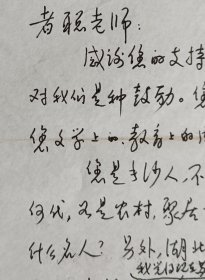 者聪老师：
感谢您的支持
对我们是种鼓励。您
您文学上的、教育上的
您是长沙人，不
何代，又是农村，聚居
什么名人？另外，湖北